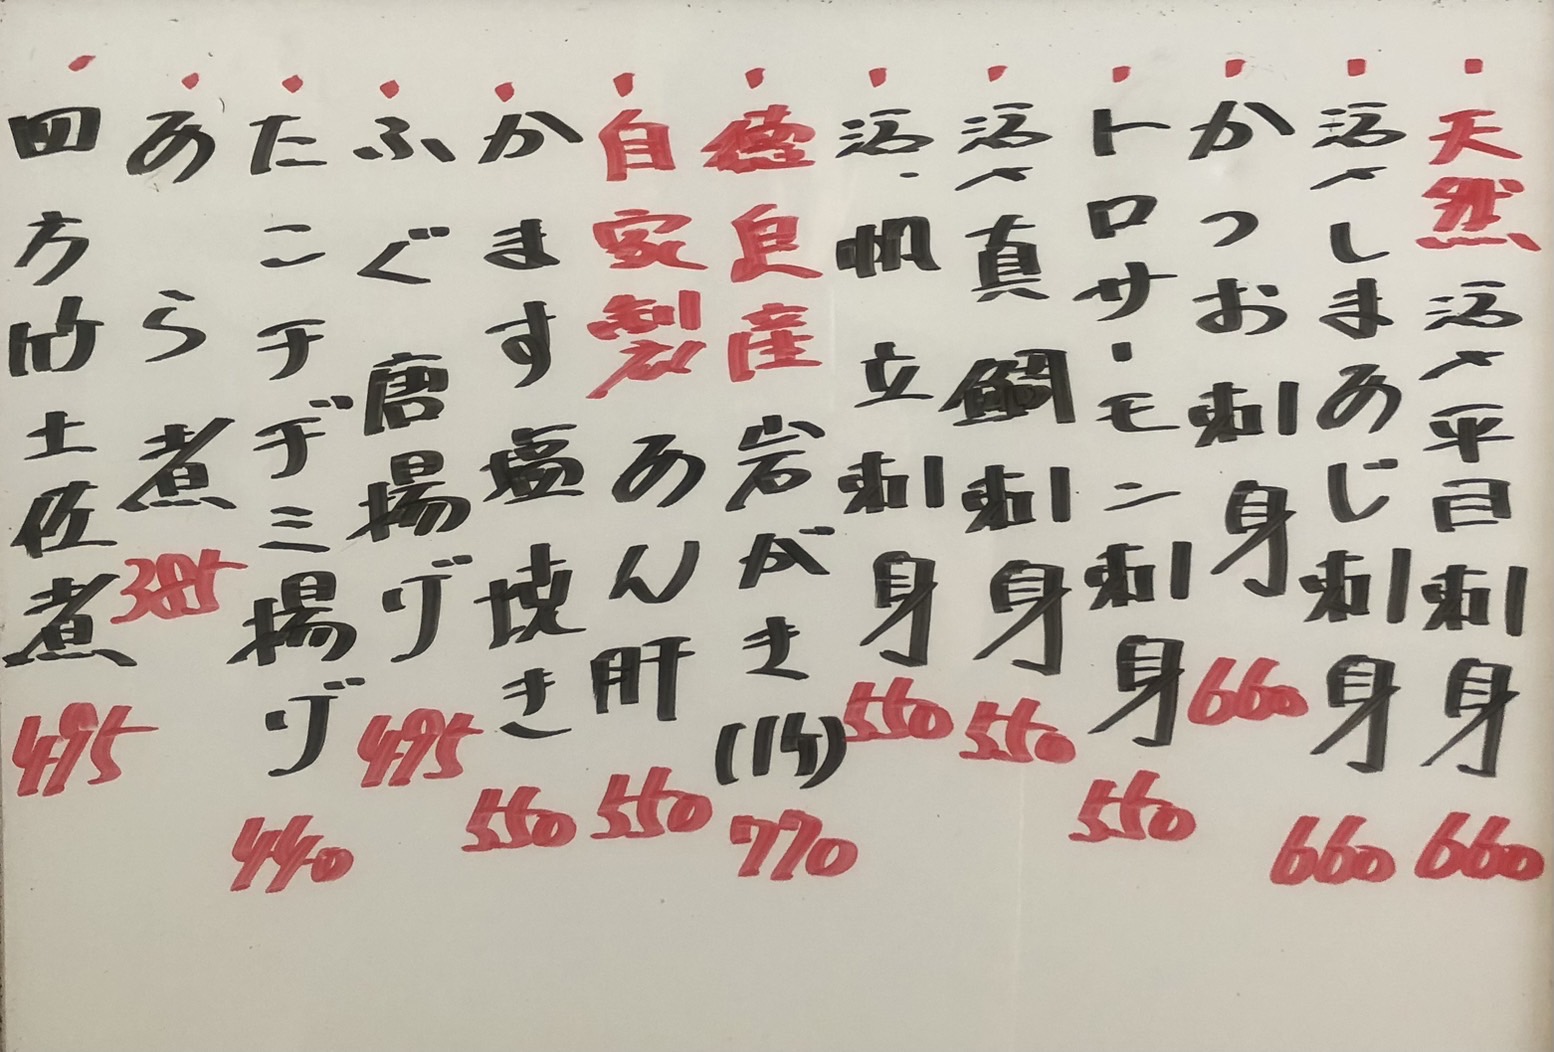 ・天然活〆平目刺身 660
・活〆しまあじ刺身 660
・かつお刺身 660
・トロサーモン刺身 550
・活〆真鯛刺身 550
・活・帆立刺身 550
・徳島産岩がき(1ヶ) 770
・自家製あん肝 550
・かます塩焼き 550
・ふぐ唐揚げ 495
・たこチヂミ揚げ 440
・あら煮 385
・四方竹土佐煮 495